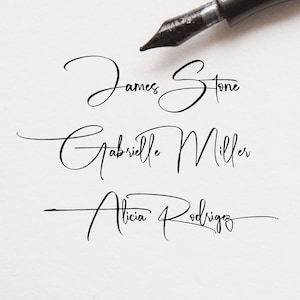 James Stone
Gabrielle Miller
Alicia Rodrigez